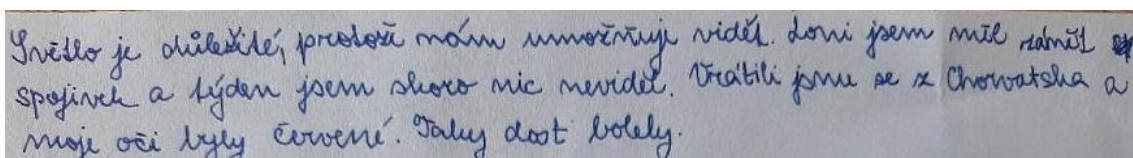 Světlo je důležité, protože nám umožňuje vidět. Loni jsem měl zánět
spojivek a týden jsem skoro nic neviděl. Vrátili jsme se z Chorvatska a
moje oči byly červené. Taky dost bolely.